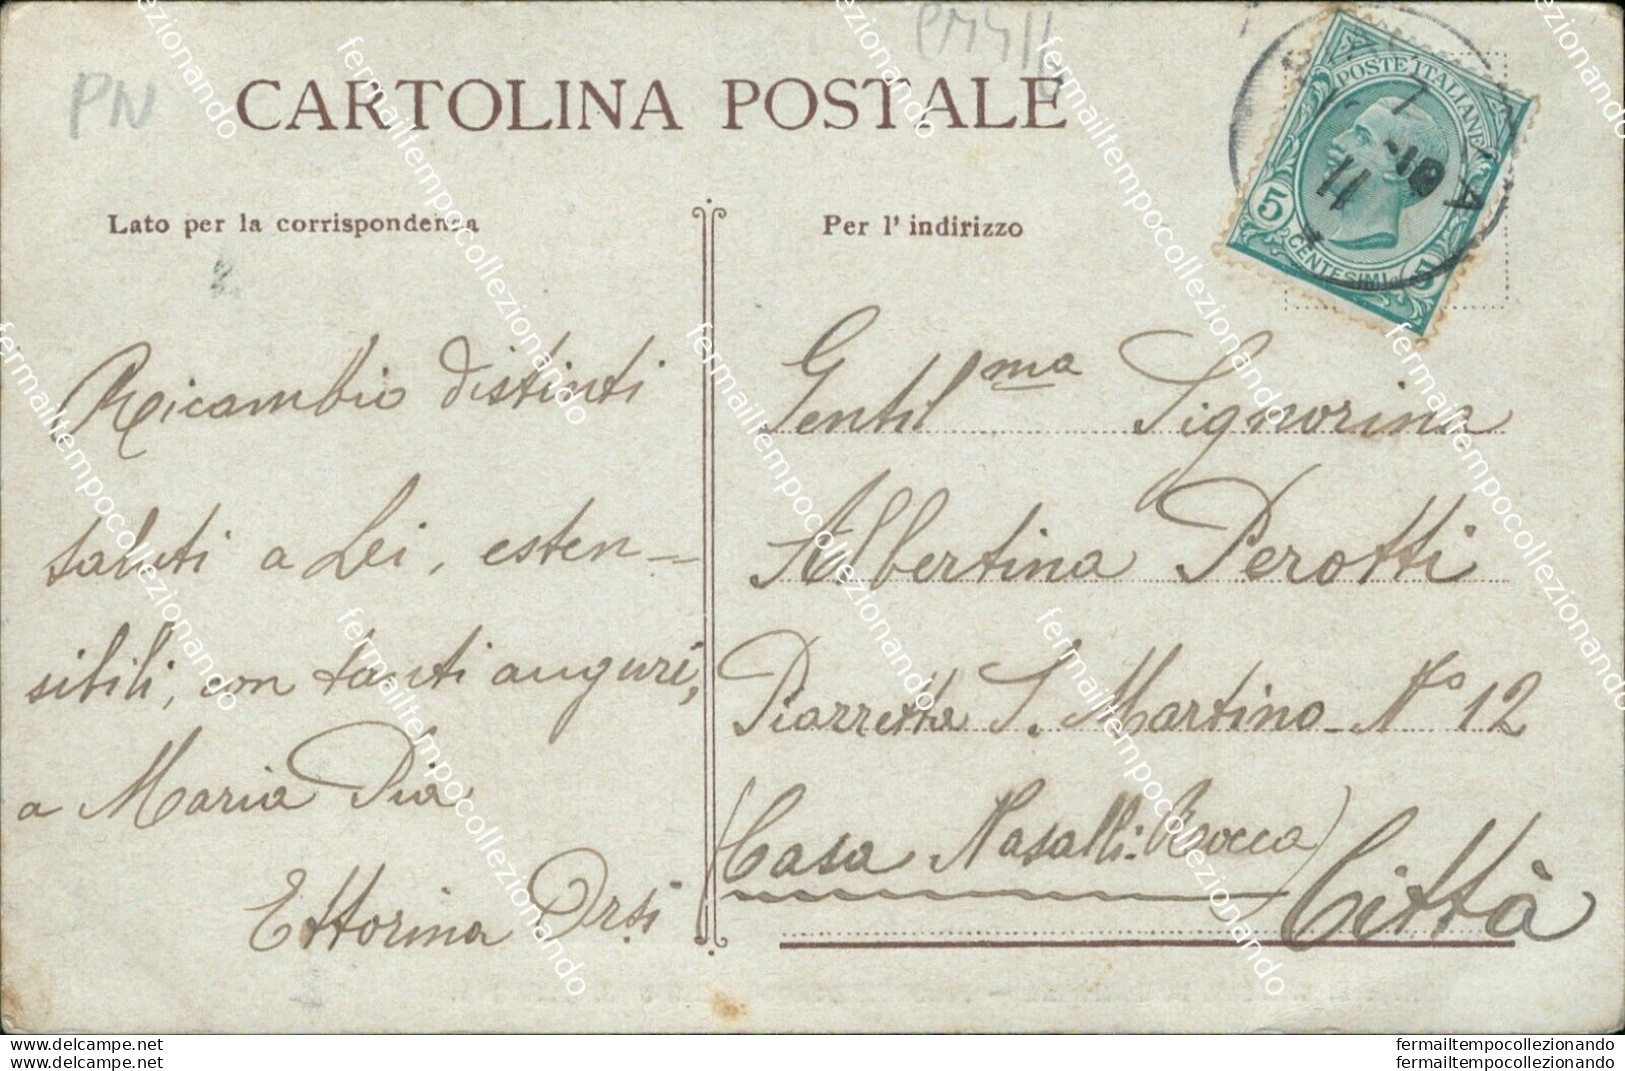 PN
CARTOLINA POSTALE
POSTE ITALIANE
5
CENTESIMI
5
Lato per la corrispondenza
Per l' indirizzo
Ricambio distinti
saluti a Lei, esten-
sibili, con tanti auguri,
a Maria Pia
Ettorina Orsi
Gentilma Signorina
Albertina Perotti
Piazzetta S. Martino N° 12
(Casa Nasalli-Rocca)
Città
fermailtempocollezionando
fermailtempocollezionando
fermailtempocollezionando
fermailtempocollezionando